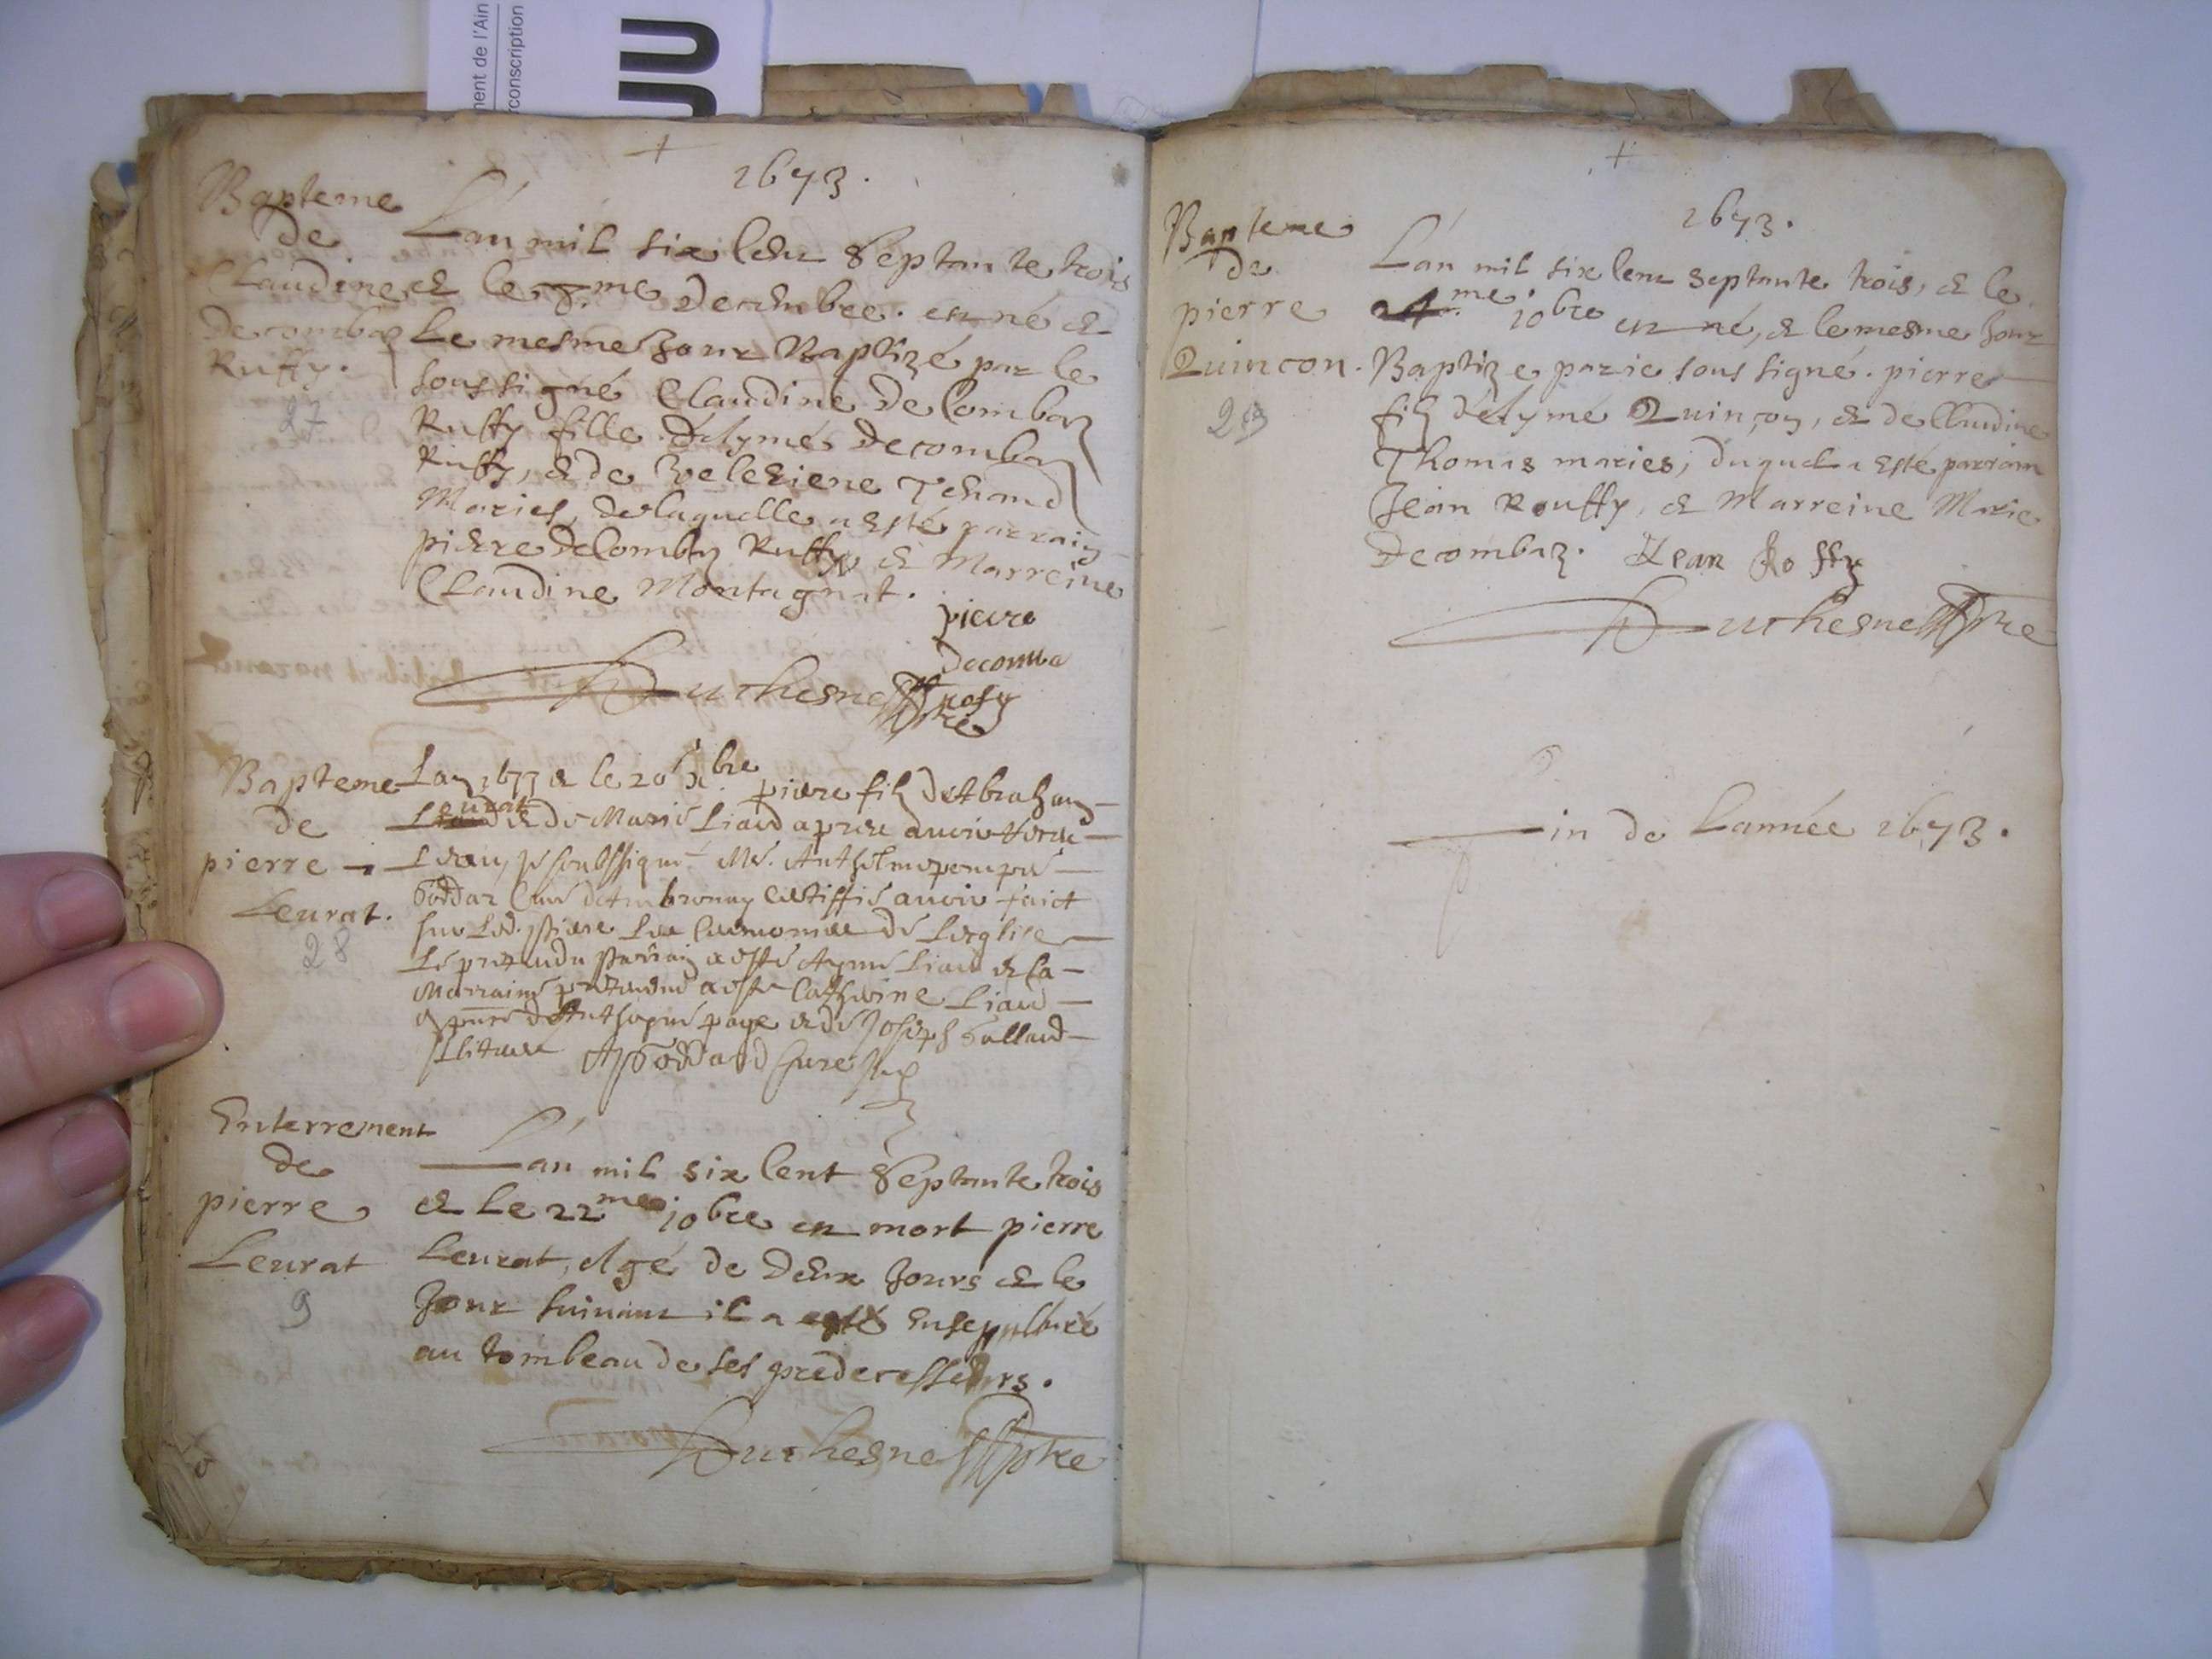 ment de l'Ain
rconscription
JU
1673.
Bapteme
de
Claudine
Decombaz
Ruffy.
27
L'an mil six Cent Septante trois
et le 8.me Decembre. est né et
Le mesme Jour Baptizé par le
soussigné Claudine DeCombaz
Ruffy fille d'Aymé Decombaz
Ruffy, et de Tenand
Mariés, de laquelle a esté parrain
pierre deCombaz Ruffy et Marreine
Claudine Montagnat.
pierre
Decomba
rofy
Duchesne ptre
Bapteme
de
pierre
Leurat.
28
Lan 1673 et le 20 Xbre pierre filz d'Abraham
Leurat et de Marie Liaud apres avoir
Leau, Je soubssigné Me. Anthelme
Goddar Curé d'Ambronay Certiffie avoir faict
sur Led. pierre Les Ceremonies de Leglise
Le pretendu parrain a esté Aymé Liaud et la
Marraine pretendue a esté Catherine Liaud
page et de Joseph Galland
A Goddard Cure
Enterrement
de
pierre
Leurat
9
L'an mil six Cent Septante trois
et Le 22me 10bre est mort pierre
Leurat, Agé de deux Jours et le
Jour suivant il a esté Ensepulturé
au tombeau de ses predecesseurs.
Duchesne ptre
1673.
Bapteme
de
pierre
Quincon.
29
L'an mil six Cent Septante trois, et le
24me. 10bre est né, et le mesme Jour
Baptize par ie sous signé. pierre
filz d'Aymé Quinçon, et de Claudine
Thomas maries, duquel a esté parrain
Jean Rouffy, et Marreine Marie
Decombaz. Jean Roffy
Duchesne ptre
Fin de Lannée 1673.